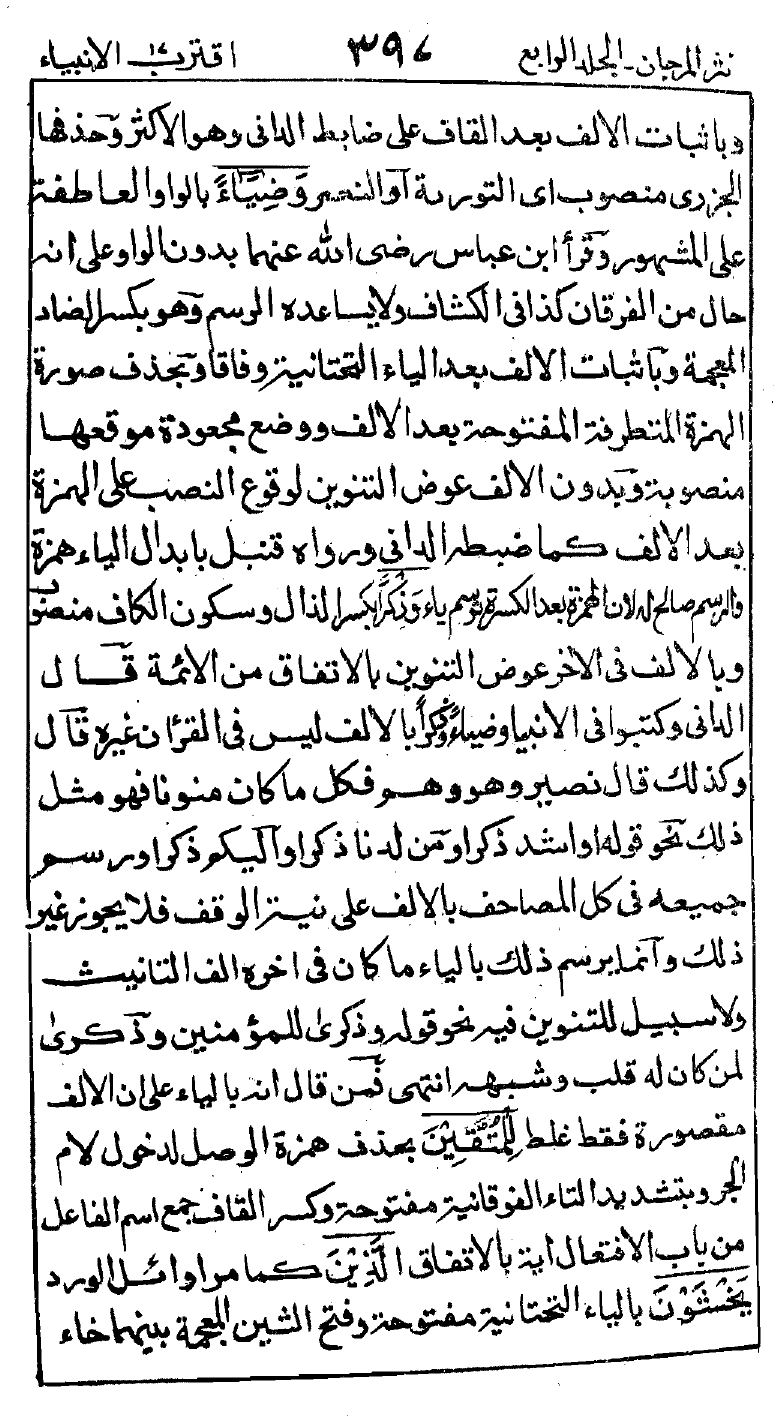 نثر المرجان - الجلد الرابع ٣٩٧ اقترب ١٧ الانبياء
وباثبات الالف بعد القاف على ضابط الدانى وهو الاكثر وحذفها
الجزرى منصوب اى التورىة او النصر وَضِيَاءً بالواو العاطفة
على المشهور وقرأ ابن عباس رضى الله عنهما بدون الواو على انه
حال من الفرقان كذا فى الكشاف ولا يساعده الرسم وهو بكسر الضاد
المعجمة وباثبات الالف بعد الياء التحتانية وفاقا وبحذف صورة
الهمزة المتطرفة المفتوحة بعد الالف ووضع مجعودة موقعها
منصوبة وبدون الالف عوض التنوين لوقوع النصب على الهمزة
بعد الالف كما ضبطه الدانى ورواه قنبل بابدال الياء همزة
والرسم صالح له لان الهمزة بعد الكسرة توسم ياء وَذِكْرًا بكسر الذال وسكون الكاف منصوب
وبالالف فى الاخر عوض التنوين بالاتفاق من الائمة قال
الدانى وكتبوا فى الانبيا وضياءً وذكراً بالالف ليس فى القرءان غيره قال
وكذلك قال نصير وهو وهم فكل ما كان منونا فهو مثل
ذلك نحو قوله او اشد ذكرا ومن لدنا ذكرا واليكم ذكرا ورسم
جميعه فى كل المصاحف بالالف على نية الوقف فلا يجوز غير
ذلك وانما يرسم ذلك بالياء ما كان فى اخره الف التانيث
ولا سبيل للتنوين فيه نحو قوله وذكرىٰ للمؤمنين وذكرىٰ
لمن كان له قلب وشبهه انتهى فمن قال انه بالياء على ان الالف
مقصورة فقط غلط لِلْمُتَّقِيْنَ بحذف همزة الوصل لدخول لام
الجر وبتشديد التاء الفوقانية مفتوحة وكسر القاف جمع اسم الفاعل
من باب الافتعال اية بالاتفاق الَّذِيْنَ كما مر اوائل الورد
يَخْشَوْنَ بالياء التحتانية مفتوحة وفتح الشين المعجمة بينهما خاء